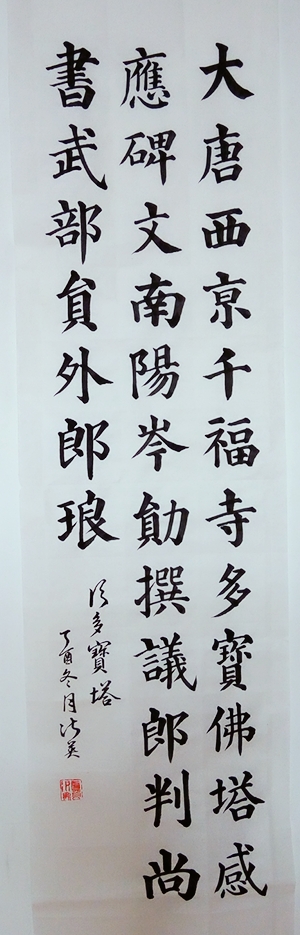 大唐西京千福寺多寶佛塔感
應碑文南陽岑勛撰議郎判尚
書武部員外郎琅
多寶塔
丁酉冬月